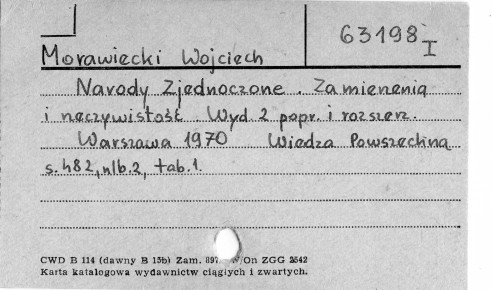 63198
I
Morawiecki Wojciech
Narody Zjednoczone. Zamierenia
i rzeczywistość Wyd. 2 popr. i rozszerz.
Warszawa 1970 Wiedza Powszechna
s. 482, nlb. 2, tab. 1.
CWD B 114 (dawny B 15b) Zam. 897 /On ZGG 2542
Karta katalogowa wydawnictw ciągłych i zwartych.